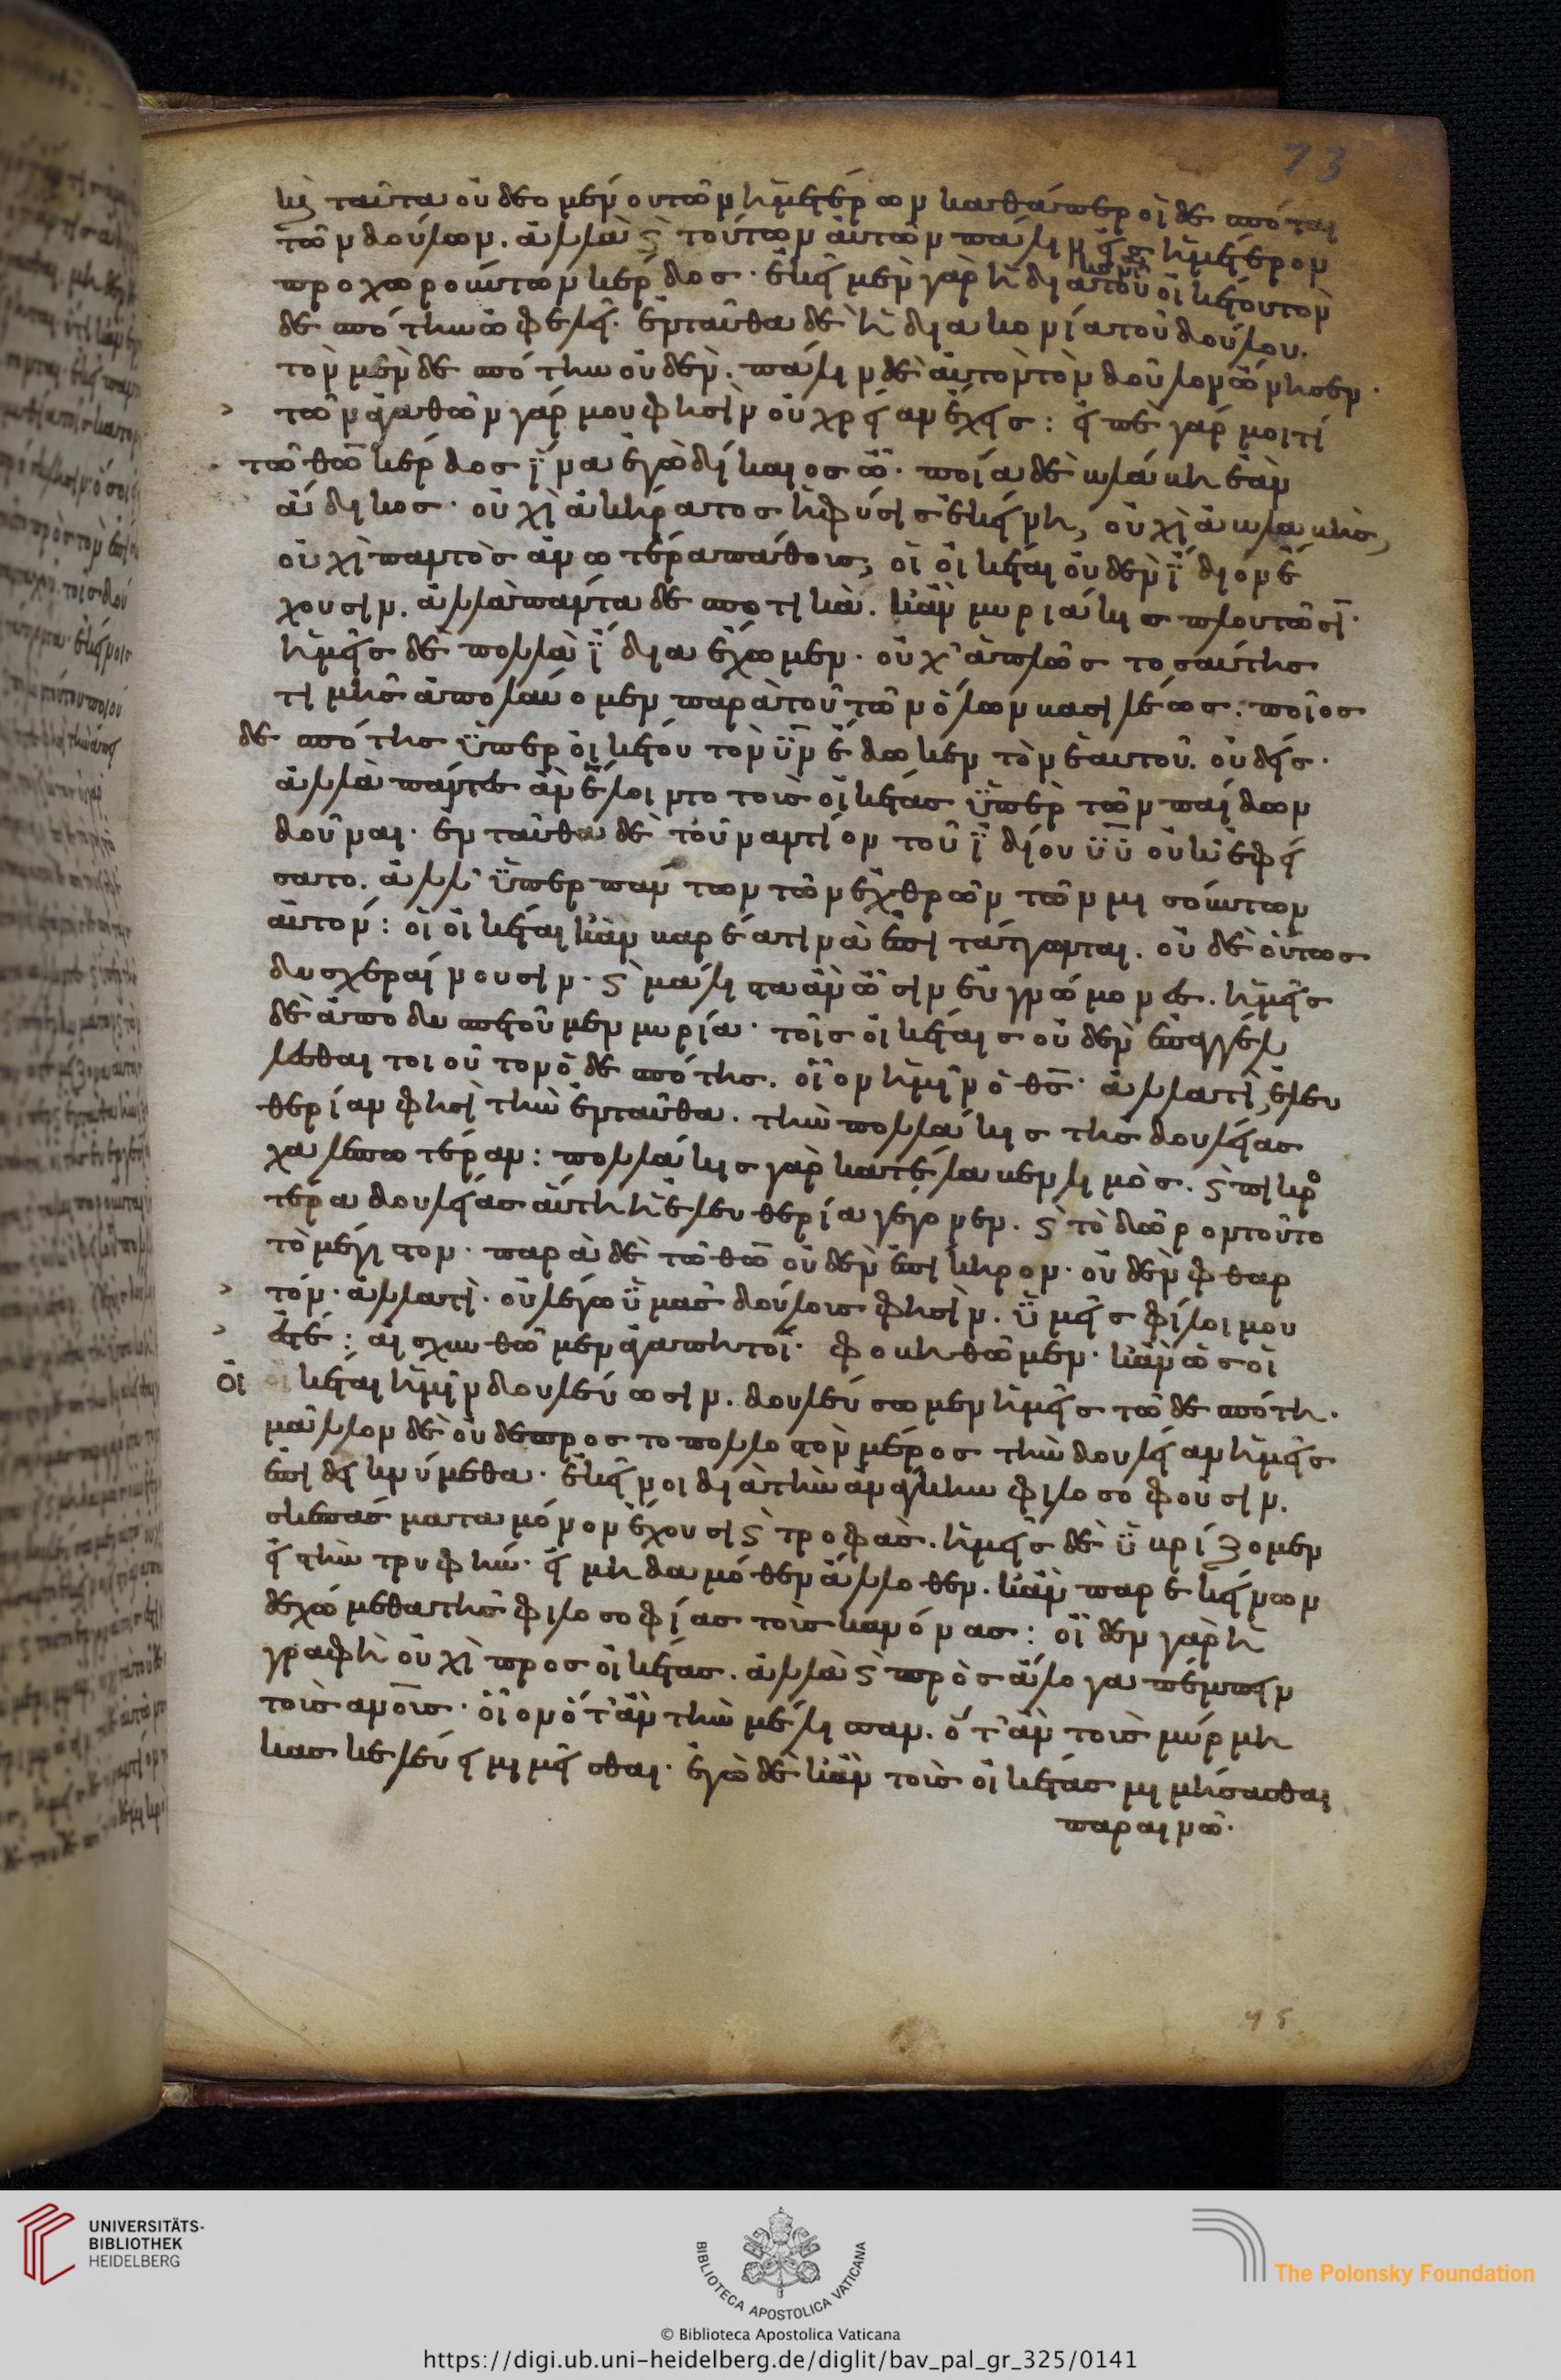 73
κ(αὶ) ταῦτα οὐ δεομένου τῶν ἡμετέρων καθάπερ οἱ δεσπόται
τῶν δούλων. ἀλλὰ κ(αὶ) τούτων αὐτῶν πάλιν εἰς ἡμέτερον
προχωρούντων κέρδος· ἐκεῖ μὲν γὰρ ἡ διακονία τοῦ οἰκέτου τὸν
δεσπότην ὠφελεῖ· ἐνταῦθα δὲ ἡ διακονία τοῦ δούλου,
τὸν μὲν δεσπότην οὐδέν. πάλιν δὲ αὐτὸν τὸν δοῦλον ὤνησεν·
τῶν ἀγαθῶν γάρ μου φησὶν οὐ χρείαν ἔχεις: εἰπὲ γάρ μοι τί
τῶ θ(ε)ῶ κέρδος ἵνα ἐγὼ δίκαιος ὦ· ποία δὲ βλάβη ἐὰν
ἄδικος· οὐχὶ ἀκήρατος ἡ φύσις ἐκείνη, οὐχὶ ἀβλαβὴς,
οὐχὶ παντὸς ἀνωτέρα πάθους, οἱ οἰκέται οὐδὲν ἴδιον ἔ
χουσιν. ἀλλὰ πάντα δεσποτικὰ. κἂν μυριάκις πλουτῶσι·
ἡμεῖς δὲ πολλὰ ἴδια ἔχωμεν· οὐχ' ἁπλῶς τοσαύτης
τιμῆς ἀπολαύομεν παρὰ τοῦ τῶν ὅλων βασιλέως. ποῖος
δεσπότης ὑπὲρ οἰκέτου τὸν ὑ(ιὸ)ν ἔδωκεν τὸν ἑαυτοῦ. οὐδείς·
ἀλλὰ πάντες ἂν ἕλοιντο τοὺς οἰκέτας ὑπὲρ τῶν παίδων
δοῦναι· ἐνταῦθα δὲ τοὐναντίον τοῦ ἰδίου υ(ἱο)ῦ οὐκ ἐφεί
σατο. ἀλλ' ὑπὲρ πάντων τῶν ἐχθρῶν τῶν μισούντων
αὐτόν: οἱ οἰκέται κἂν βαρέα τινὰ ἐπιτάττωνται. οὐδὲ οὕτως
δυσχεραίνουσιν· κ(αὶ) μάλιστα ἂν ὦσιν εὐγνώμονες. ἡμεῖς
δὲ ἀποδυσπετοῦμεν μυρία· τοῖς οἰκέταις οὐδὲν ἐπαγγέλ
λεται τοιοῦτον ὁ δεσπότης. οἷον ἡμῖν ὁ θ(εό)ς· ἀλλὰ τί, ἐλευ
θερίαν φησὶ τὴν ἐνταῦθα. τὴν πολλάκις τῆς δουλείας
χαλεπωτέραν: πολλάκις γὰρ κατέλαβεν λιμὸς. κ(αὶ) πικρο
τέρα δουλείας αὕτη ἡ ἐλευθερία γέγονεν. κ(αὶ) τὸ δῶρον τοῦτο
τὸ μέγιστον· παρὰ δὲ τῶ θ(ε)ῶ οὐδὲν ἐπίκηρον· οὐδὲν φθαρ
τόν· ἀλλὰ τί· οὐ λέγω ὑμᾶς δούλους φησὶν. ὑμεῖς φίλοι μου
ἐστέ: αἰσχυνθῶμεν ἀγαπητοί· φοβηθῶμεν· κἂν ὡς οἱ
οἰκέται ἡμῖν δουλεύωσιν. δουλεύσωμεν ἡμεῖς τῶ δεσπότη·
μᾶλλον δὲ οὐδὲ πρὸς τὸ πολλοστὸν μέρος τὴν δουλείαν ἡμεῖς
ἐπιδεικνύμεθα· ἐκεῖνοι διὰ τὴν ἀνάγκην φιλοσοφοῦσιν.
σκεπάσματα μόνον ἔχουσι κ(αὶ) τροφάς. ἡμεῖς δὲ ὑβρίζομεν
εἰς τὴν τρυφήν· εἰ μηδαμόθεν ἄλλοθεν. κἂν παρ' ἐκείνων
δεχώμεθα τῆς φιλοσοφίας τοὺς κανόνας: οἶδεν γὰρ ἡ
γραφὴ οὐχὶ πρὸς οἰκέτας. ἀλλὰ κ(αὶ) πρὸς ἄλογα πέμπειν
τοὺς ἀν(θρώπ)ους· οἷον ὅτ' ἂν τὴν μέλισσαν. ὅτ' ἂν τοὺς μύρμη
κας κελεύει μιμεῖσθαι· ἐγὼ δὲ κἂν τοὺς οἰκέτας μιμήσασθαι
παραινῶ·
UNIVERSITÄTS-
BIBLIOTHEK
HEIDELBERG
BIBLIOTECA APOSTOLICA VATICANA
The Polonsky Foundation
© Biblioteca Apostolica Vaticana
https://digi.ub.uni-heidelberg.de/diglit/bav_pal_gr_325/0141